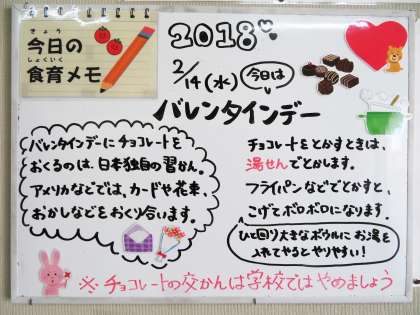 きょう
今日の
しょくいく
食育メモ
2018
2/14(水)
今日は
バレンタインデー
バレンタインデーにチョコレートを
おくるのは、日本独自の習かん。
アメリカなどでは、カードや花束、
おかしなどをおくり合います。
チョコレートをとかすときは、
湯せんでとかします。
フライパンなどでとかすと、
こげてボロボロになります。
ひと回り大きなボウルにお湯を
入れてやるとやりやすい!
※チョコレートの交かんは学校ではやめましょう